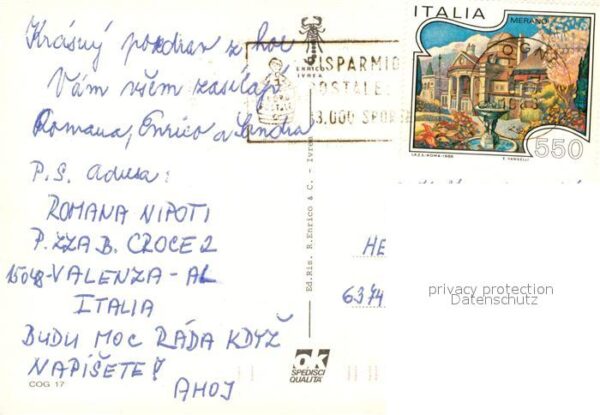 Krásný pozdrav z hor
Vám všem zasílají
Romana, Enrico a Sandra
P.S. adresa:
ROMANA NIPOTI
P.ZZA B. CROCE 2
15048-VALENZA-AL
ITALIA
BUDU MOC RÁDA KDYŽ
NAPÍŠETE!
AHOJ
COG 17
ENRICO
IVREA
RISPARMIO
POSTALE
Ed.Ris. R.Enrico & C. - Ivrea
OK
SPEDISCI
QUALITA'
ITALIA
MERANO
550
I.P.Z.S.-ROMA-1986
E. VANGELLI
HE
6374
privacy protection
Datenschutz